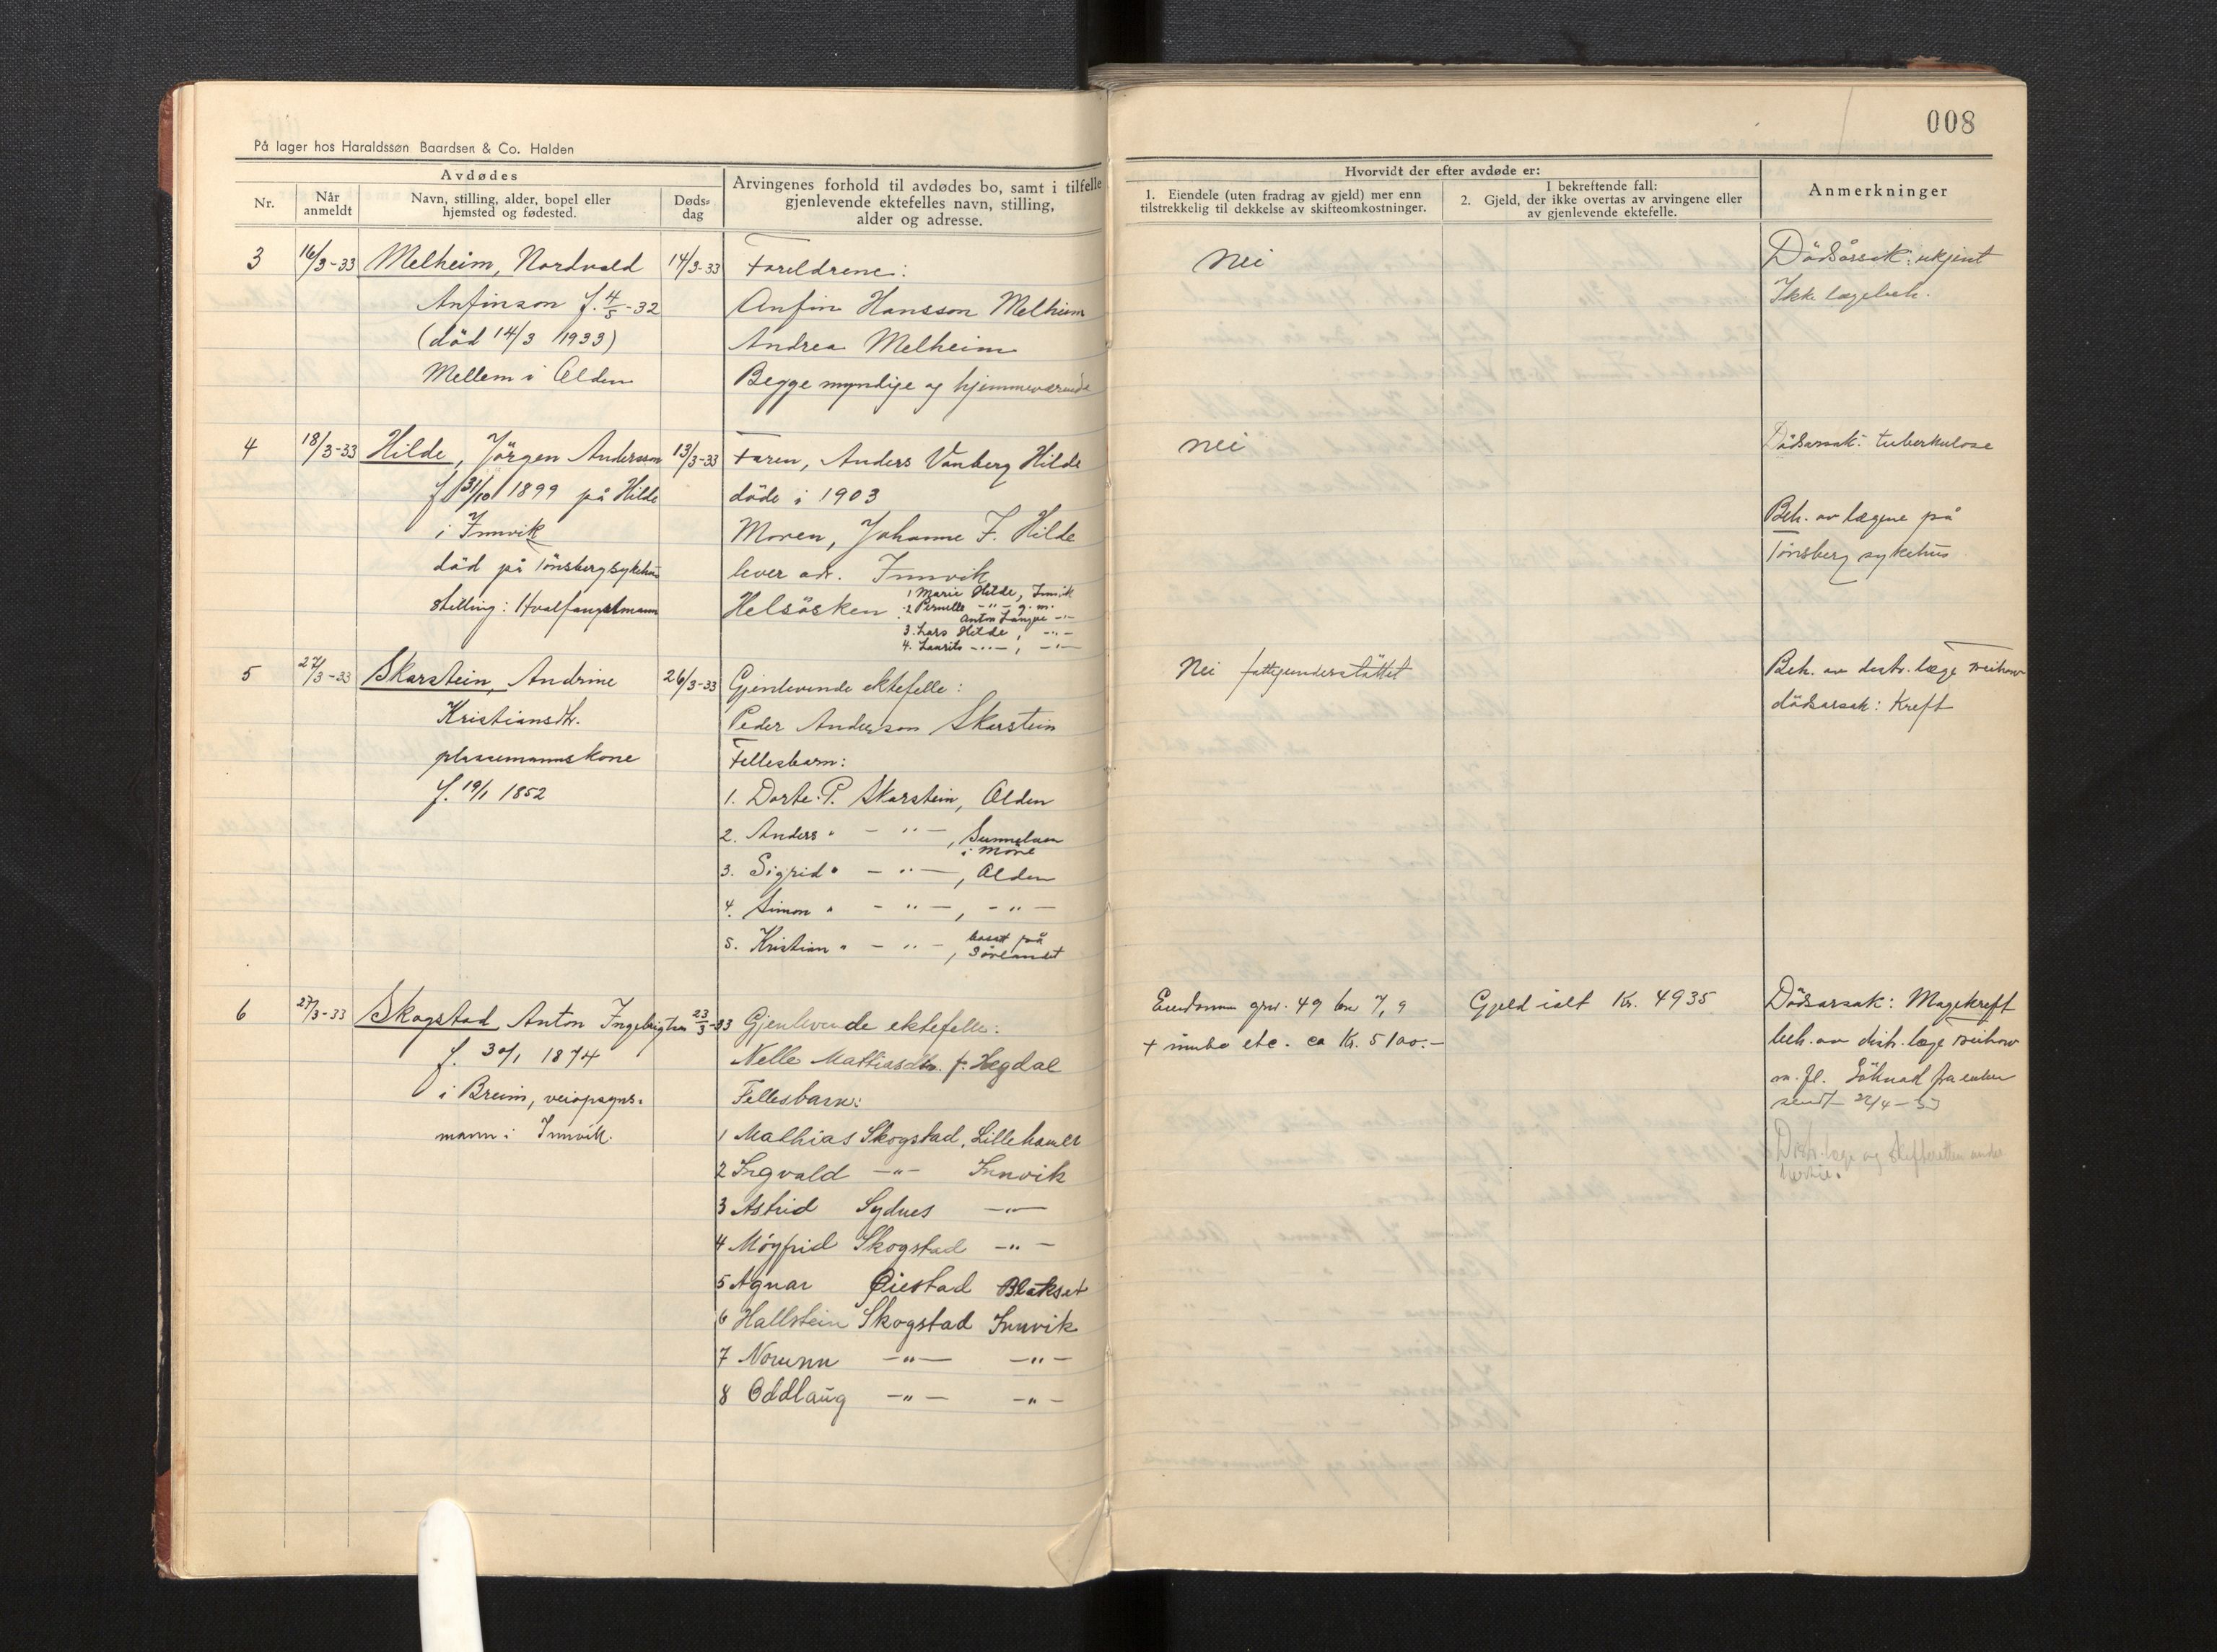 På lager hos Haraldssøn Baardsen & Co. Halden
Avdødes
Nr.
Når anmeldt
Navn, stilling, alder, bopel eller hjemsted og fødested.
Døds-
dag
Arvingenes forhold til avdødes bo, samt i tilfelle
gjenlevende ektefelles navn, stilling,
alder og adresse.
3 16/3-33 Melheim, Nordvald 14/3-33 Foreldrene:
Anfinson f. 4/5-32 Anfin Hansson Melheim
(död 14/3 1933) Andrea Melheim
Mellem i Olden Begge myndige og hjemmeværende
4 18/3-33 Hilde, Jörgen Andersson 13/3-33 Faren, Anders Vanberg Hilde
f 31/10 1899 på Hilde döde i 1903
i Innvik Moren, Johanne F. Hilde
död på Tönsberg sykehus lever adr. Innvik
Stilling: Hvalfangstmann Helsösken 1 Marie Hilde, Innvik
2 Pernille -"- g.m.
Anton Langve -"-
3. Lars Hilde, -"-
4. Laurits -"-, -"-
5 27/3-33 Skarstein, Andrine 26/3-33 Gjenlevende ektefelle:
Kristiansdtr. Peder Anderson Skarstein
plassmannskone Fellesbarn:
f. 19/1 1852 1. Dorte P. Skarstein, Olden
2. Anders " - " -,
i Möre
3. Sigrid " - " -, Olden
4. Simon " - " -, - " -
5. Kristian " - " -, bosatt på
Sörlandet
6 27/3-33 Skogstad Anton Ingebrigtsen 23/3-33 Gjenlevende ektefelle:
f. 30/1 1874 Nelle Mattiasdtr. f. Hegdal
i Breim, veiopsyns- Fellesbarn:
mann i Innvik. 1 Mathias Skogstad, Lillehamer
2 Ingvald -"- Innvik
3 Astrid Sydnes -"-
4 Möyfrid Skogstad -"-
5 Agnar Øiestad Blakset
6 Hallstein Skogstad Innvik
7 Norunn -"- -"-
8 Oddlaug -"- -"-
008
Hvorvidt der efter avdøde er:
1. Eiendele (uten fradrag av gjeld) mer enn
tilstrekkelig til dekkelse av skifteomkostninger.
I bekreftende fall:
2. Gjeld, der ikke overtas av arvingene eller
av gjenlevende ektefelle.
Anmerkninger
Nei Dödsårsak: ukjent
Ikke lægebeh.
Nei Dödsarsak: tuberkulose
Beh. av lægene på
Tönsberg sykehus
Nei fattigunderstöttet Beh. av distr. læge
dödsarsak: Kreft
Eiendomm gnr. 49 bnr 7, 9 Gjeld ialt Kr. 4935 Dödsarsak: Magekreft
+ innbo etc. ca Kr. 5100.- beh. av distr. læge
m. fl. Söknad fra enken
sendt 22/4-33
Distr. læge og skifteretten